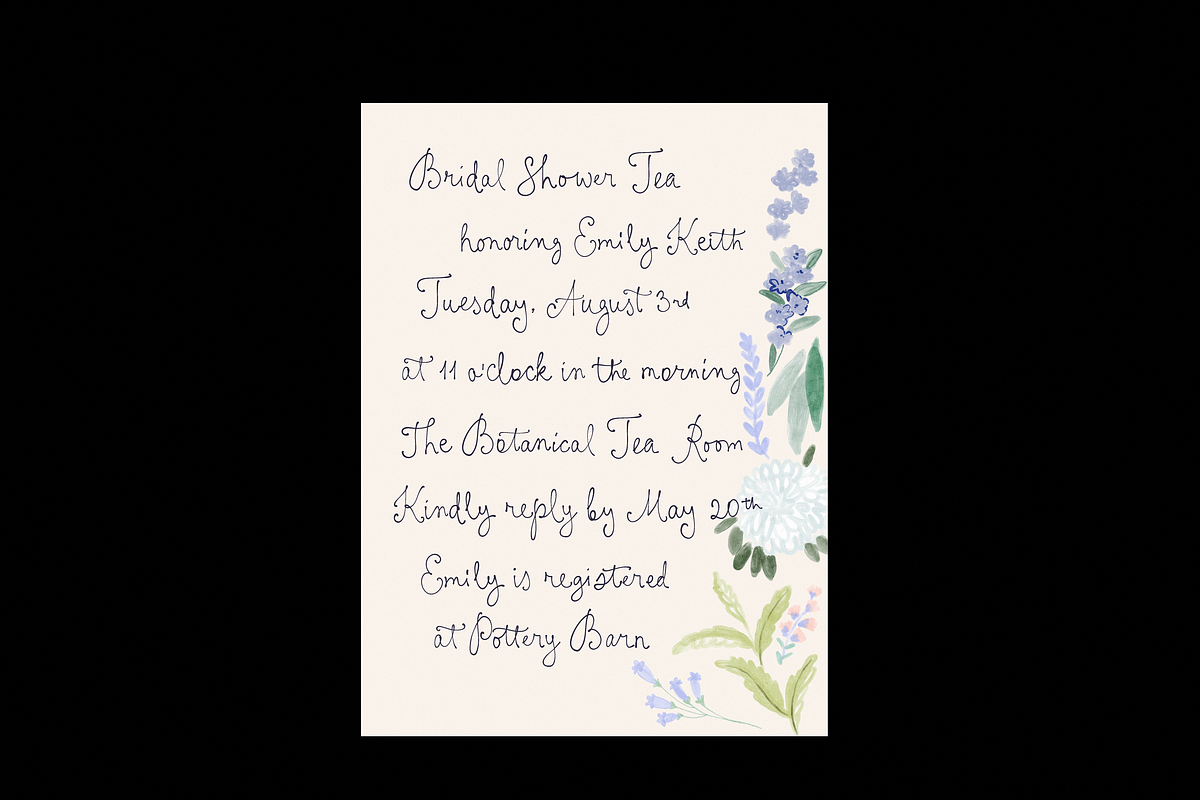 Bridal Shower Tea
honoring Emily Keith
Tuesday, August 3rd
at 11 o'clock in the morning
The Botanical Tea Room
Kindly reply by May 20th
Emily is registered
at Pottery Barn